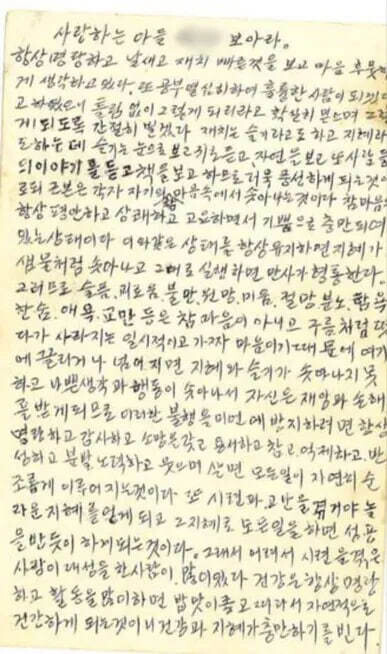 사랑하는 아들 보아라.
항상 명랑하고 날새고 재치 빠른것을 보고 마음 후뭇하
게 생각하고 있다. 또 공부 열심히하여 훌륭한 사람이 되겠다
고 하였으니 틀림 없이 그렇게 되리라고 확실히 믿으며 그렇
게 되도록 간절히 빌겠다 재치는 슬기라고도 하고 지혜라
도 하는데 슬기는 눈으로 보고 귀로 듣고 자연을 보고 남 사람들
의 이야기를 듣고 책을 보고 하므로 더욱 풍성하게 되는 것이
로되 근본은 각자 자기의 마음속에서 솟아나는 것이다 참마음은
항상 평안하고 상쾌하고 고요하면서 기쁨으로 충만되여
있는 상태이다 이와같은 상태를 항상 유지하면 지혜가
샘물처럼 솟아나고 그대로 실행하면 만사가 형통한다.
그러므로 슬픔, 괴로움, 불만, 원망, 미움, 절망, 분노, 탐욕
한숨, 애욕, 교만 등은 참 마음이 아니고 구름처럼 떳
다가 사라지는 일시적이고 가짜 마음이기 때문에 여기
에 끌리거나 넘어지면 지혜와 슬기가 솟아나지 못
하고 나쁜생각과 행동이 솟아나서 자신은 재앙과 손해
를 받게 되므로 이러한 불행을 미연에 방지하려면 항상
명랑하고 감사하고 소망을 갖고 용서하고 참고, 억제하고, 반
성하고 분발 노력하고 웃으며 살면 모든일이 자연히 순
조롭게 이루어 지는것이다 또 시련과 고난을 겪거야 놀
라운 지혜를 얻게 되고 그 지혜로 모든일을 하면 성공
을 밥듯이 하게 되는 것이다. 그래서 어려서 시련을 격은
사람이 대성을 한 사람이 많이 있다 건강은 항상 명랑
하고 활동을 많이하면 밥맛이 좋고 따라서 자연적으로
건강하게 되는것이니 건강과 지혜가 충만하기를 빈다.